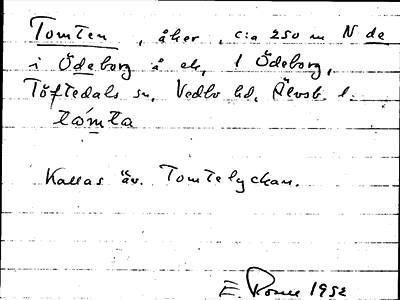 Tomten, åker, c:a 250 m N de
i Ödeborg å ek, 1 Ödeborg,
Töftedals sn, Vedbo hd, Älvsb. l.
tómta
Kallas äv. Tomtelyckan.
E. 1952